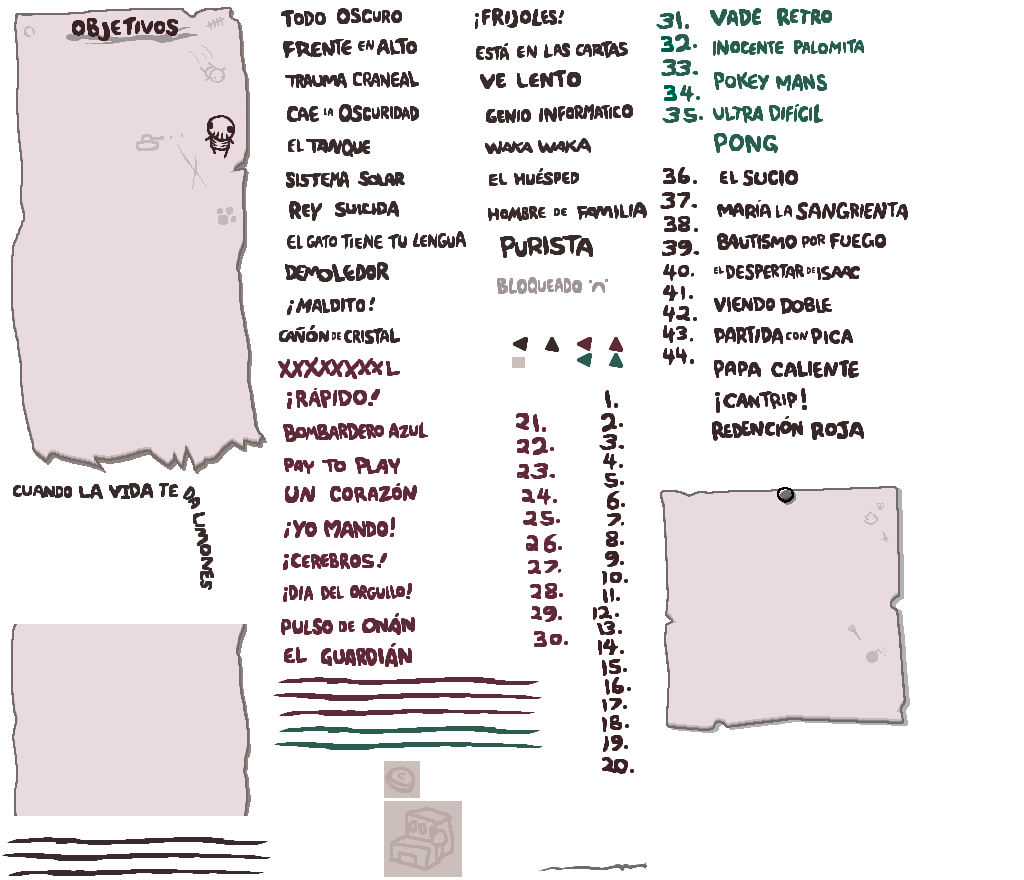 OBJETIVOS
CUANDO LA VIDA TE DA LIMONES
TODO OSCURO
FRENTE EN ALTO
TRAUMA CRANEAL
CAE LA OSCURIDAD
EL TANQUE
SISTEMA SOLAR
REY SUICIDA
EL GATO TIENE TU LENGUA
DEMOLEDOR
¡MALDITO!
CAÑÓN DE CRISTAL
XXXXXXXXL
¡RÁPIDO!
BOMBARDERO AZUL
PAY TO PLAY
UN CORAZÓN
¡YO MANDO!
¡CEREBROS!
¡DIA DEL ORGULLO!
PULSO DE ONÁN
EL GUARDIÁN
¡FRIJOLES!
ESTÁ EN LAS CARTAS
VE LENTO
GENIO INFORMATICO
WAKA WAKA
EL HUÉSPED
HOMBRE DE FAMILIA
PURISTA
BLOQUEADO "n"
21.
22.
23.
24.
25.
26.
27.
28.
29.
30.
1.
2.
3.
4.
5.
6.
7.
8.
9.
10.
11.
12.
13.
14.
15.
16.
17.
18.
19.
20.
31.
32.
33.
34.
35.
36.
37.
38.
39.
40.
41.
42.
43.
44.
VADE RETRO
INOCENTE PALOMITA
POKEY MANS
ULTRA DIFÍCIL
PONG
EL SUCIO
MARÍA LA SANGRIENTA
BAUTISMO POR FUEGO
EL DESPERTAR DE ISAAC
VIENDO DOBLE
PARTIDA CON PICA
PAPA CALIENTE
¡CANTRIP!
REDENCIÓN ROJA